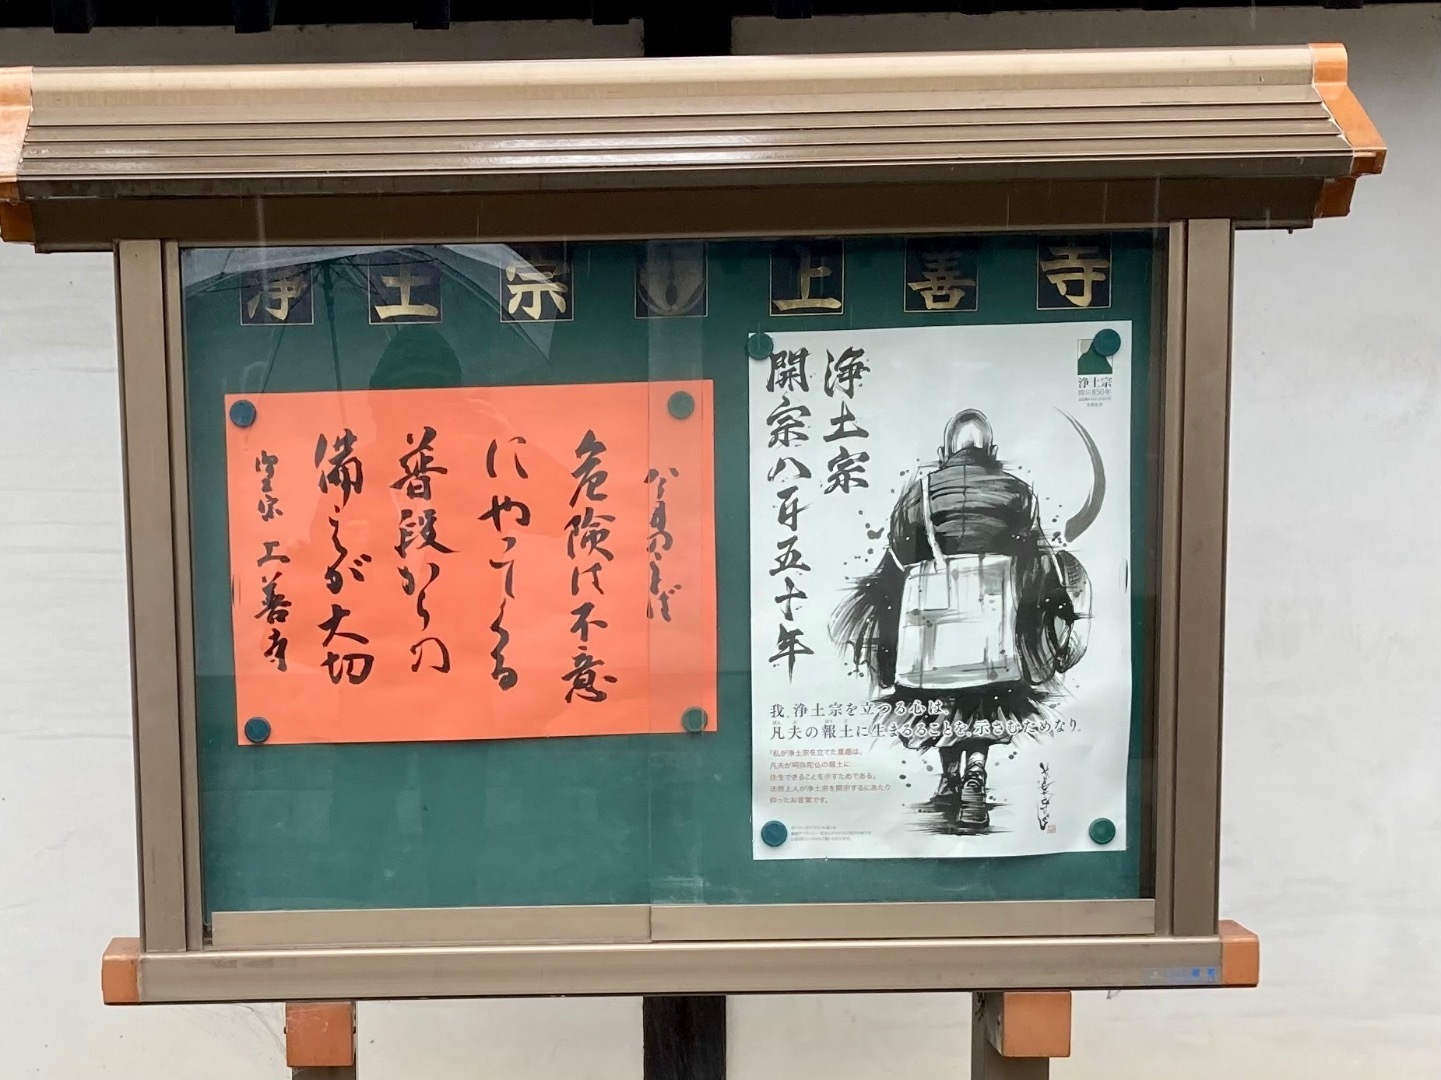 浄土宗 上善寺
危険は不意
にやってくる
普段からの
備えが大切
上善寺
浄土宗
開宗八百五十年
浄土宗
我、浄土宗を立つる心は、
凡夫の報土に生まるることを、示さむためなり。
「私が浄土宗を立てた意趣は、
凡夫が阿弥陀仏の報土に
往生できることを示すためである」
法然上人が浄土宗を開宗するにあたり
仰ったお言葉です。